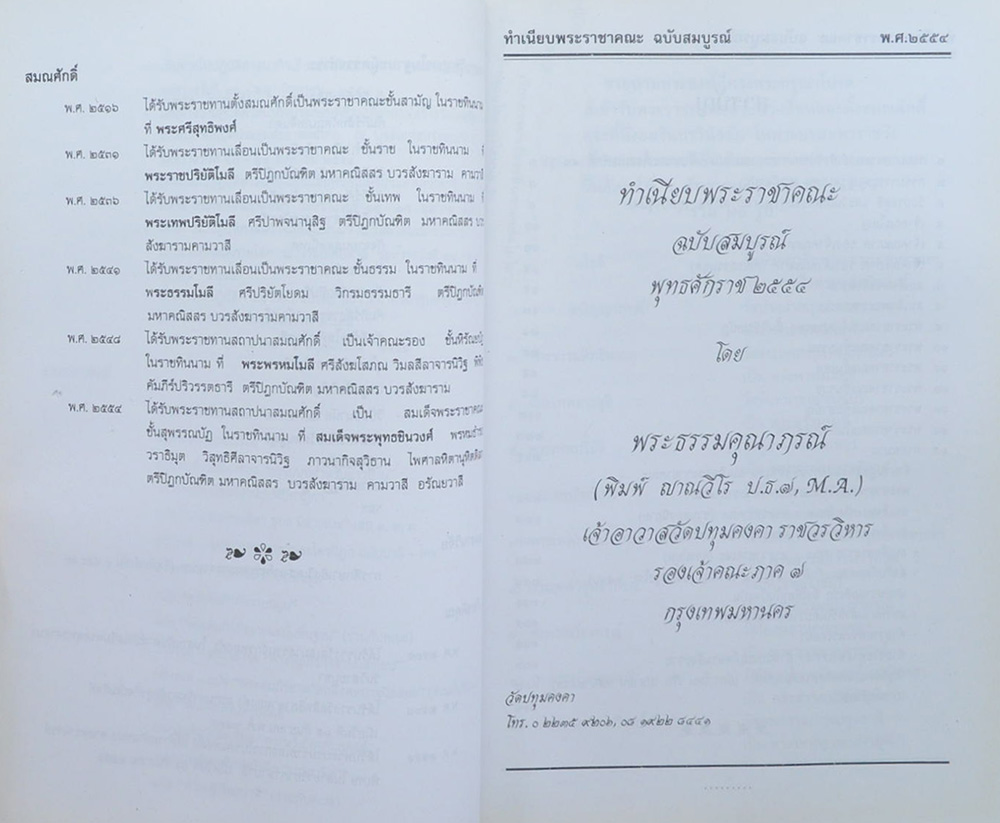 สมณศักดิ์
พ.ศ. ๒๕๑๖ ได้รับพระราชทานตั้งสมณศักดิ์เป็นพระราชาคณะชั้นสามัญ ในราชทินนาม
ที่ พระศรีสุทธิพงศ์
พ.ศ. ๒๕๓๑ ได้รับพระราชทานเลื่อนเป็นพระราชาคณะ ชั้นราช ในราชทินนาม
พระราชปริยัติโมลี ตรีปิฎกบัณฑิต มหาคณิสสร บวรสังฆาราม
พ.ศ. ๒๕๓๖ ได้รับพระราชทานเลื่อนเป็นพระราชาคณะ ชั้นเทพ ในราชทินนาม
พระเทพปริยัติโมลี ศรีปาพจนานุสิฐ ตรีปิฎกบัณฑิต มหาคณิสสร
สังฆารามคามวาสี
พ.ศ. ๒๕๔๑ ได้รับพระราชทานเลื่อนเป็นพระราชาคณะ ชั้นธรรม ในราชทินนาม ที่
พระธรรมโมลี ศรีปริยัตโยดม วิกรมธรรมธารี
มหาคณิสสร บวรสังฆารามคามวาสี
พ.ศ. ๒๕๔๘ ได้รับพระราชทานสถาปนาสมณศักดิ์ เป็นเจ้าคณะรอง
ในราชทินนาม ที่ พระพรหมโมลี ศรีสังฆโสภณ วิมลสีลาจารนิวิฐ
คัมภีร์ปริวรรตธารี ตรีปิฎกบัณฑิต มหาคณิสสร บวรสังฆาราม
พ.ศ. ๒๕๕๔ ได้รับพระราชทานสถาปนาสมณศักดิ์ เป็น สมเด็จพระราชาคณะ
ชั้นสุพรรณบัฏ ในราชทินนาม ที่ สมเด็จพระพุทธชินวงศ์
วราธิมุต วิสุทธิศีลาจารนิวิฐ ภาวนากิจสุวิธาน
ตรีปิฎกบัณฑิต มหาคณิสสร บวรสังฆาราม คามวาสี อรัณยวาสี
ทำเนียบพระราชาคณะ ฉบับสมบูรณ์ พ.ศ.๒๕๕๔
ทำเนียบพระราชาคณะ
ฉบับสมบูรณ์
พุทธศักราช ๒๕๕๔
โดย
พระธรรมคุณาภรณ์
(พิมพ์ ญาณวีโร ป.ธ.๗, M.A.)
เจ้าอาวาสวัดปทุมคงคา ราชวรวิหาร
รองเจ้าคณะภาค ๗
กรุงเทพมหานคร
วัดปทุมคงคา
โทร. ๐ ๒๒๓๕ ๙๒๐๖, ๐๘ ๑๙๒๒ ๘๔๔๑